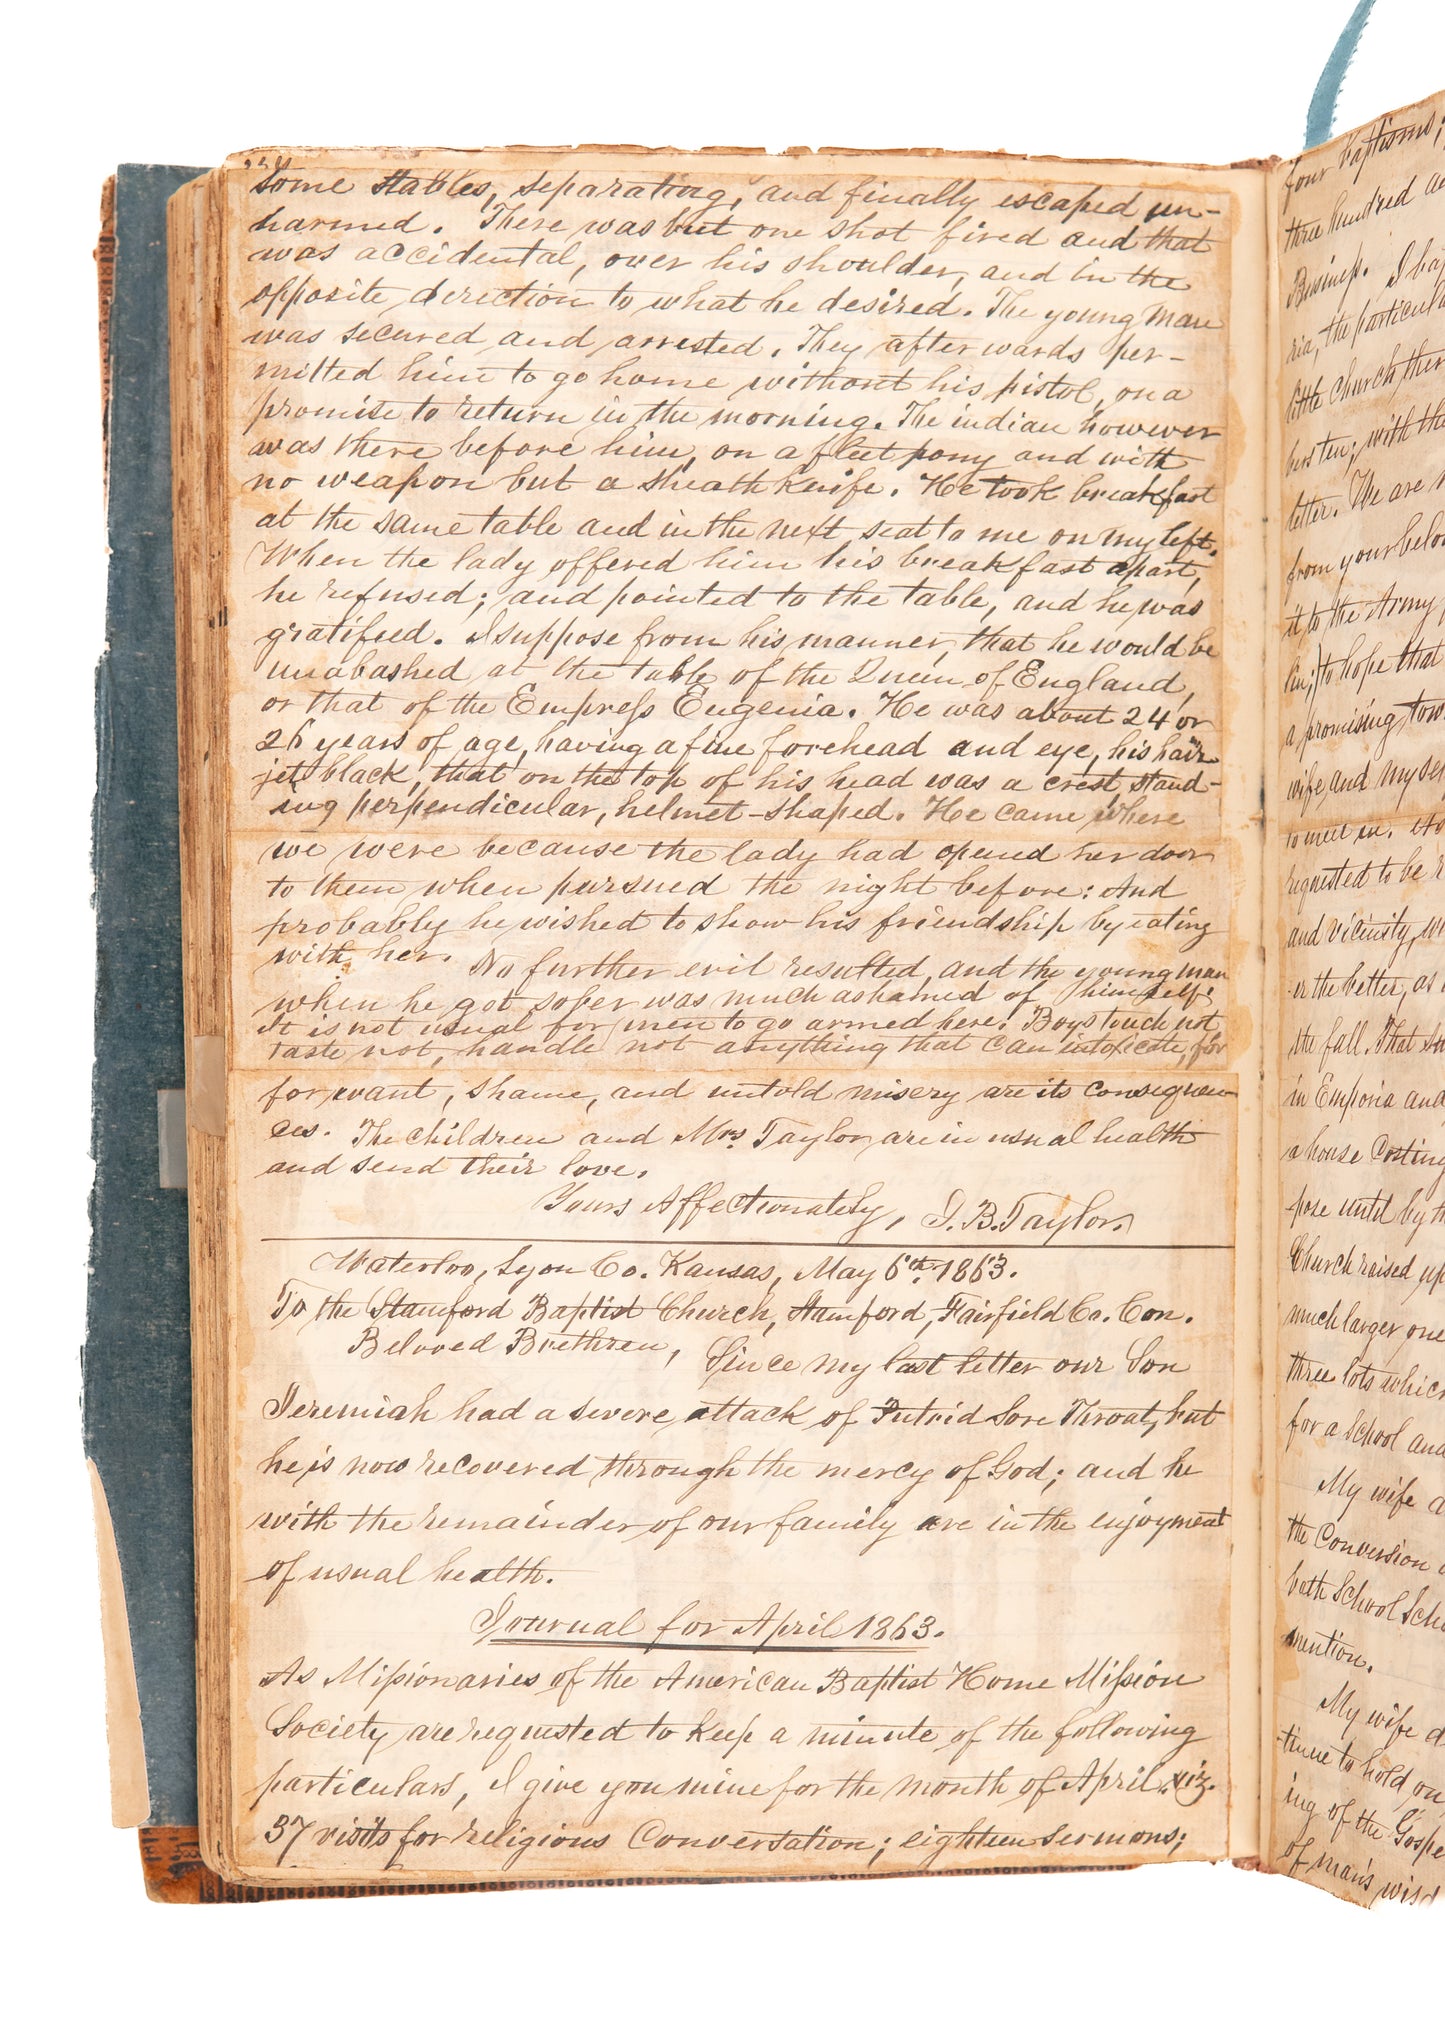 some stables, separating, and finally escaped un-
harmed. There was but one shot fired and that
was accidental, over his shoulder, and in the
opposite direction to what he desired. The young man
was secured and arrested. They afterwards per-
mitted him to go home without his pistol, on a
promise to return in the morning. The indian however
was there before him, on a fleet pony and with
no weapon but a sheath knife. He took breakfast
at the same table and in the next seat to me on my left.
When the lady offered him his breakfast apart,
he refused; and pointed to the table, and he was
gratified. I suppose from his manner, that he would be
unabashed at the table of the Queen of England,
or that of the Empress Eugenia. He was about 24 or
26 years of age, having a fine forehead and eye, his hair
jet black, that on the top of his head was a crest stand-
ing perpendicular, helmet-shaped. He came where
we were because the lady had opened her door
to them when pursued the night before: And
probably he wished to show his friendship by eating
with her. No further evil resulted, and the young man
when he got sober was much ashamed of himself.
It is not usual for men to go armed here. Boys touch not,
taste not, handle not anything that can intoxicate, for
for want, shame, and untold misery are its consequen-
ces. The children and Mrs. Taylor are in usual health
and send their love.
Yours Affectionately, J. B. Taylor.
Waterloo, Lyon Co. Kansas, May 6th. 1863.
To the Stamford Baptist Church, Stamford, Fairfield Co. Con.
Beloved Brethren, Since my last letter our Son
Jeremiah had a severe attack of Putrid Sore Throat, but
he is now recovered through the mercy of God; and he
with the remainder of our family are in the enjoyment
of usual health.
Journal for April 1863.
As Missionaries of the American Baptist Home Mission
Society are requested to keep a minute of the following
particulars, I give you mine for the month of April. viz.
37 visits for religious Conversation; eighteen sermons;
four baptisms;
three hundred
Business. I
ria, the
little church,
bers ten; with the
letter. We are
from your
it to the Army
to hope that
a promising
wife and
to meet in.
requested to be
and vicinity,
er the better, as
the fall. That
in Emporia and
a house Costing
pose until by
Church raised up
much larger one
three lots which
for a School and
My wife
the Conversion
bath School
mention.
My wife
tinue to hold on
ing of the
of man's